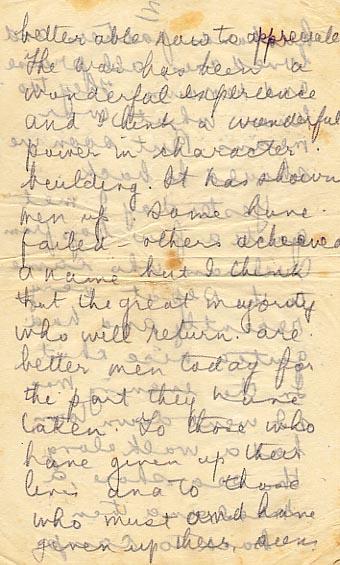 better able now to appreciate
The war has been a
wonderful experience
and I think a wonderful
power in character
building. It has shown
men up some have
failed - others achieved
a name but I think
that the great majority
who will return are
better men today for
the part they have
taken. To those who
have given up their
lives and to those
who must and have
given up these, deem